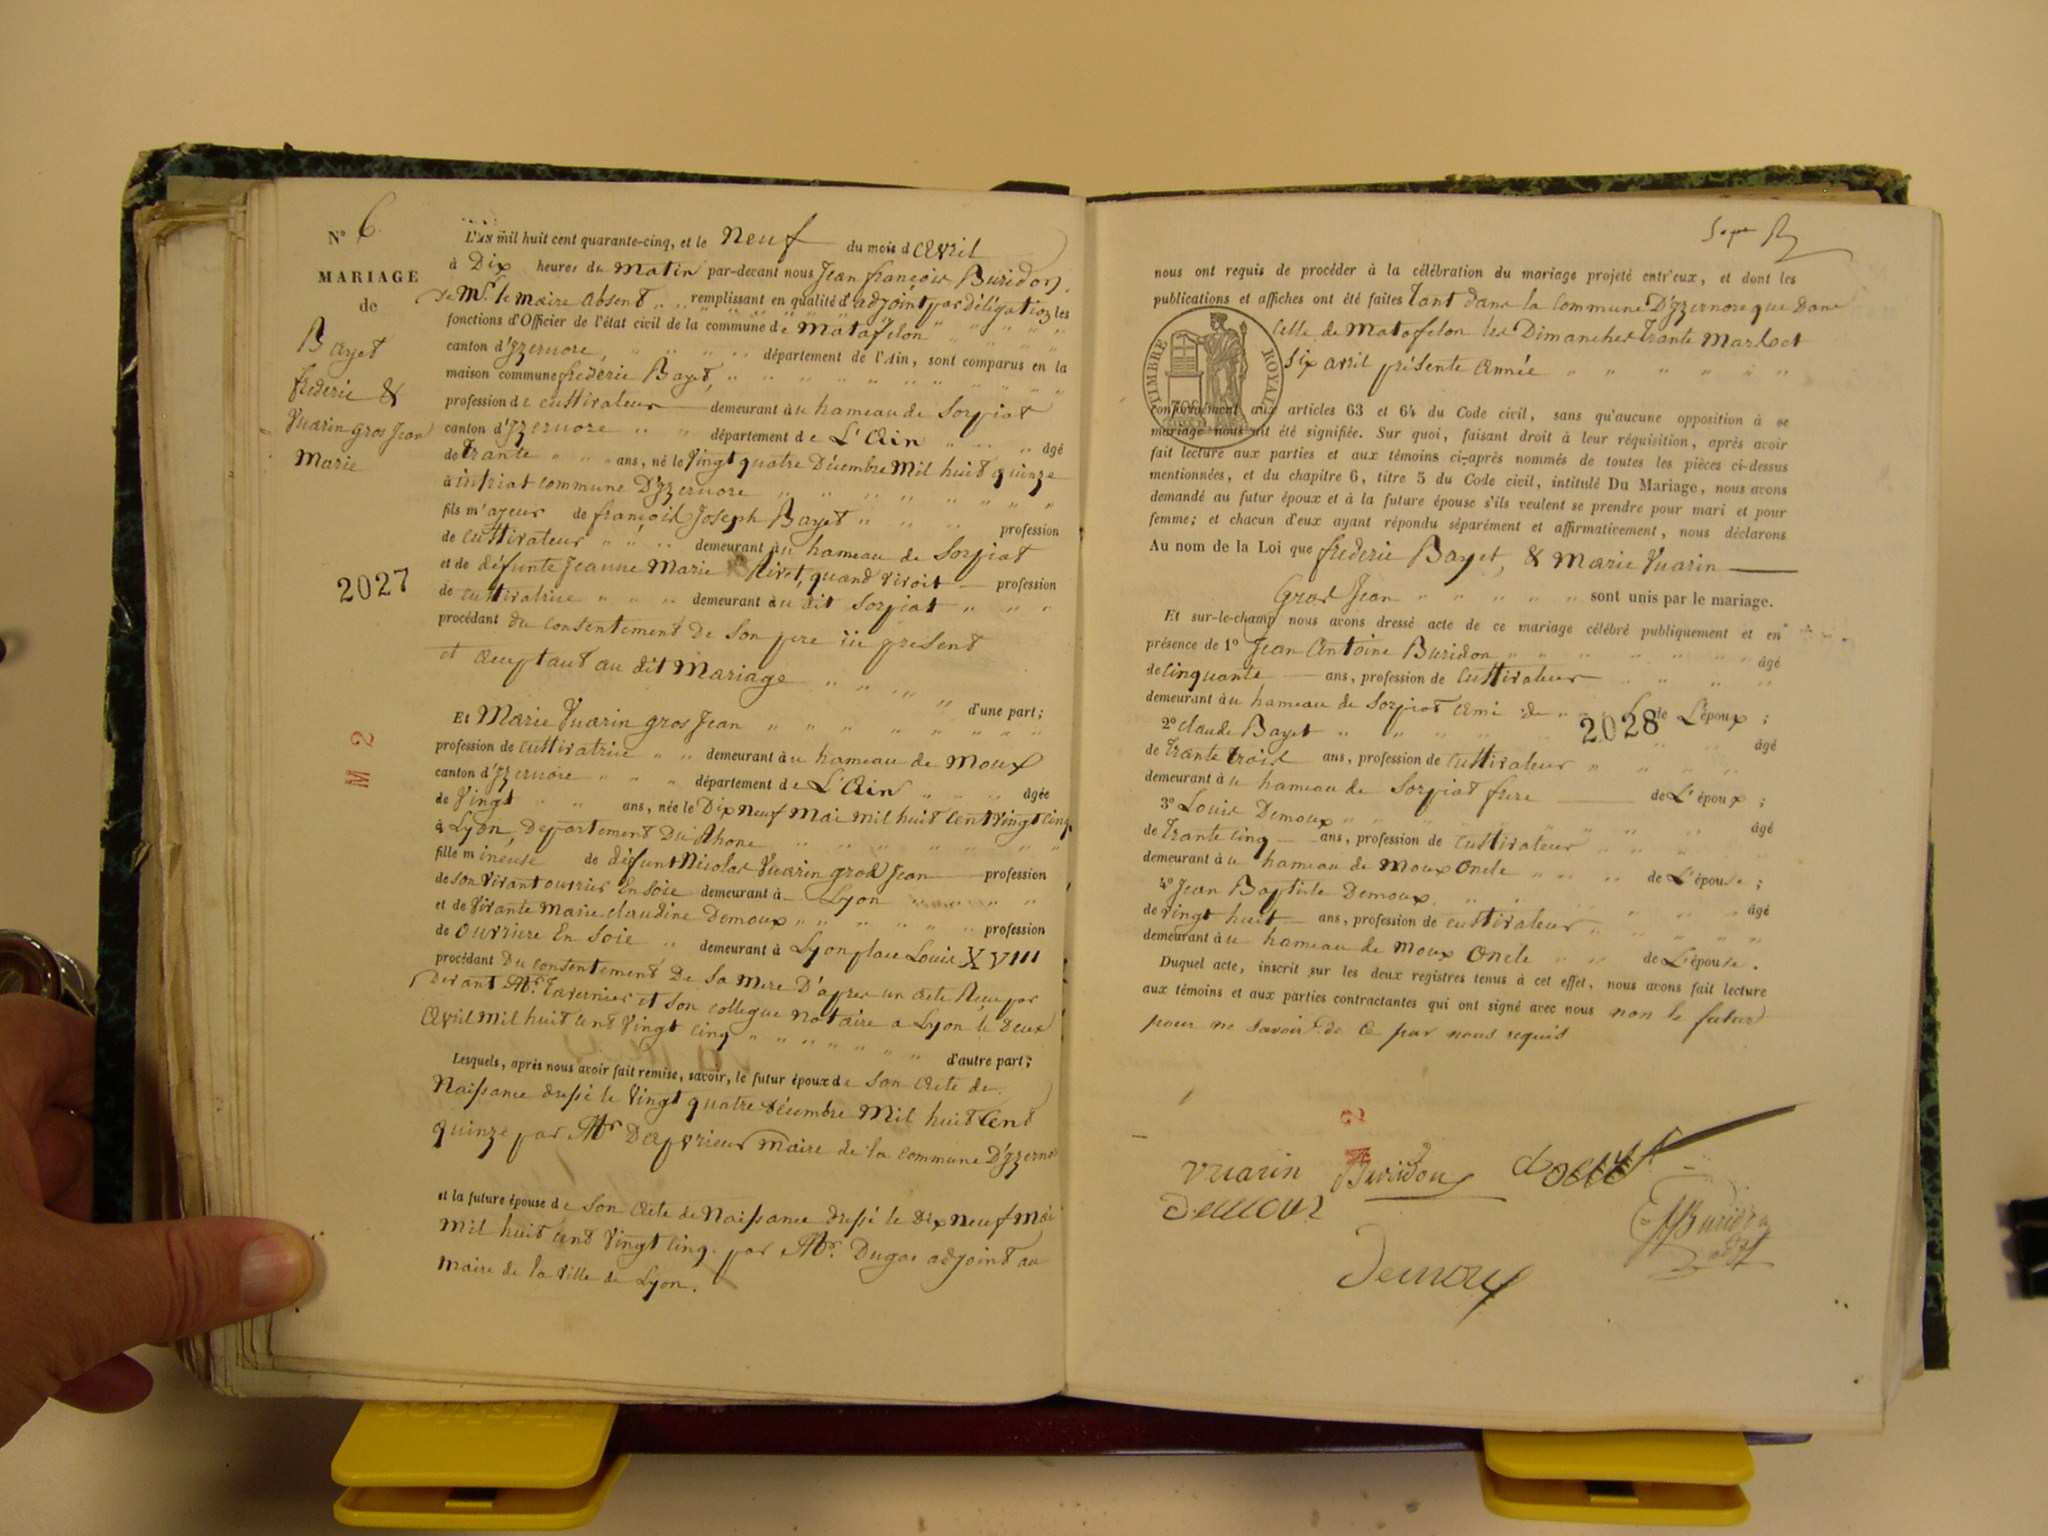 N° 6.
MARIAGE
de
Bayet
frederic &
Vuarin gros Jean
Marie
2027
M 2
L'AN mil huit cent quarante-cinq, et le Neuf du mois d'Avril
à Dix heures du Matin par-devant nous Jean françois Buridon,
de Mr. le maire Absent remplissant en qualité d'adjoint par Délégation les
fonctions d'Officier de l'état civil de la commune de Matafelon
canton d'Yzernore, département de l'Ain, sont comparus en la
maison commune frederic Bayet,
profession de cultivateur demeurant au hameau de Sorpiat
canton d'Yzernore département de L'Ain âgé
de Trante ans, né le Vingt quatre Décembre Mil huit quinze
à intriat commune D'Yzernore
fils majeur de françois Joseph Bayet profession
de Cultivateur demeurant au hameau de Sorpiat
et de défunte Jeanne Marie Rivet, quand vivoit profession
de cultivatrice demeurant au dit Sorpiat
procédant du Consentement De Son pere ici présent
et aceptant au dit Mariage
d'une part;
Et Marie Vuarin gros Jean
profession de cultivatrice demeurant au hameau de Moux
canton d'Yzernore département de L'Ain âgée
de Vingt ans, née le Dix Neuf Mai mil huit Cent Vingt Cinq
à Lyon, Département Du Rhone
fille mineuse de défunt Nicolas Vuarin gros Jean profession
de son Vivant ouvrier En soie demeurant à Lyon
et de Vivante Marie claudine Demoux profession
de Ouvriere En Soie demeurant à Lyon place Louis XVIII
procédant Du Consentement De Sa Mere D'apres un acte Reçu par
Devant Mr. Tavernier et Son collegue notaire a Lyon le Deux
Avril mil huit cent Vingt Cinq
d'autre part;
Lesquels, après nous avoir fait remise, savoir, le futur époux de Son Acte de
Naissance dressé le Vingt quatre Décembre Mil huit Cent
quinze par Mr Dapvrieux maire de la commune D'Yzernore
et la future épouse de Son Acte de Naissance dressé le Dix neuf Mai
Mil huit Cent Vingt Cinq. par Mr. Dugas adjoint au
maire de la Ville de Lyon.
nous ont requis de procéder à la célébration du mariage projeté entr'eux, et dont les
publications et affiches ont été faites Tant dans la Commune D'Yzernore que Dans
Celle de Matafelon les Dimanches Trante Mars et
Six avril présente Année
TIMBRE ROYAL
conformément aux articles 63 et 64 du Code civil, sans qu'aucune opposition à se
mariage nous ait été signifiée. Sur quoi, faisant droit à leur réquisition, après avoir
fait lecture aux parties et aux témoins ci-après nommés de toutes les pièces ci-dessus
mentionnées, et du chapitre 6, titre 5 du Code civil, intitulé Du Mariage, nous avons
demandé au futur époux et à la future épouse s'ils veulent se prendre pour mari et pour
femme; et chacun d'eux ayant répondu séparément et affirmativement, nous déclarons
Au nom de la Loi que frederic Bayet, & Marie Vuarin
Gros Jean sont unis par le mariage.
Et sur-le-champ nous avons dressé acte de ce mariage célébré publiquement et en
présence de 1° Jean Antoine Buridon âgé
de Cinquante ans, profession de Cultivateur
demeurant au hameau de Sorpiat ami de de L'époux;
2028
2° claude Bayet âgé
de Trante trois ans, profession de Cultivateur
demeurant au hameau de Sorpiat frere de L'époux;
3° Louis Demoux âgé
de Trante Cinq ans, profession de Cultivateur
demeurant au hameau de Moux Oncle de L'épouse;
4° Jean Baptiste Demoux. âgé
de vingt huit ans, profession de cultivateur
demeurant au hameau de Moux Oncle de L'épouse.
Duquel acte, inscrit sur les deux registres tenus à cet effet, nous avons fait lecture
aux témoins et aux parties contractantes qui ont signé avec nous non le futur
pour ne savoir de ce par nous requis
vuarin Buridon
Demoux
Demoux
Buridon
adjt